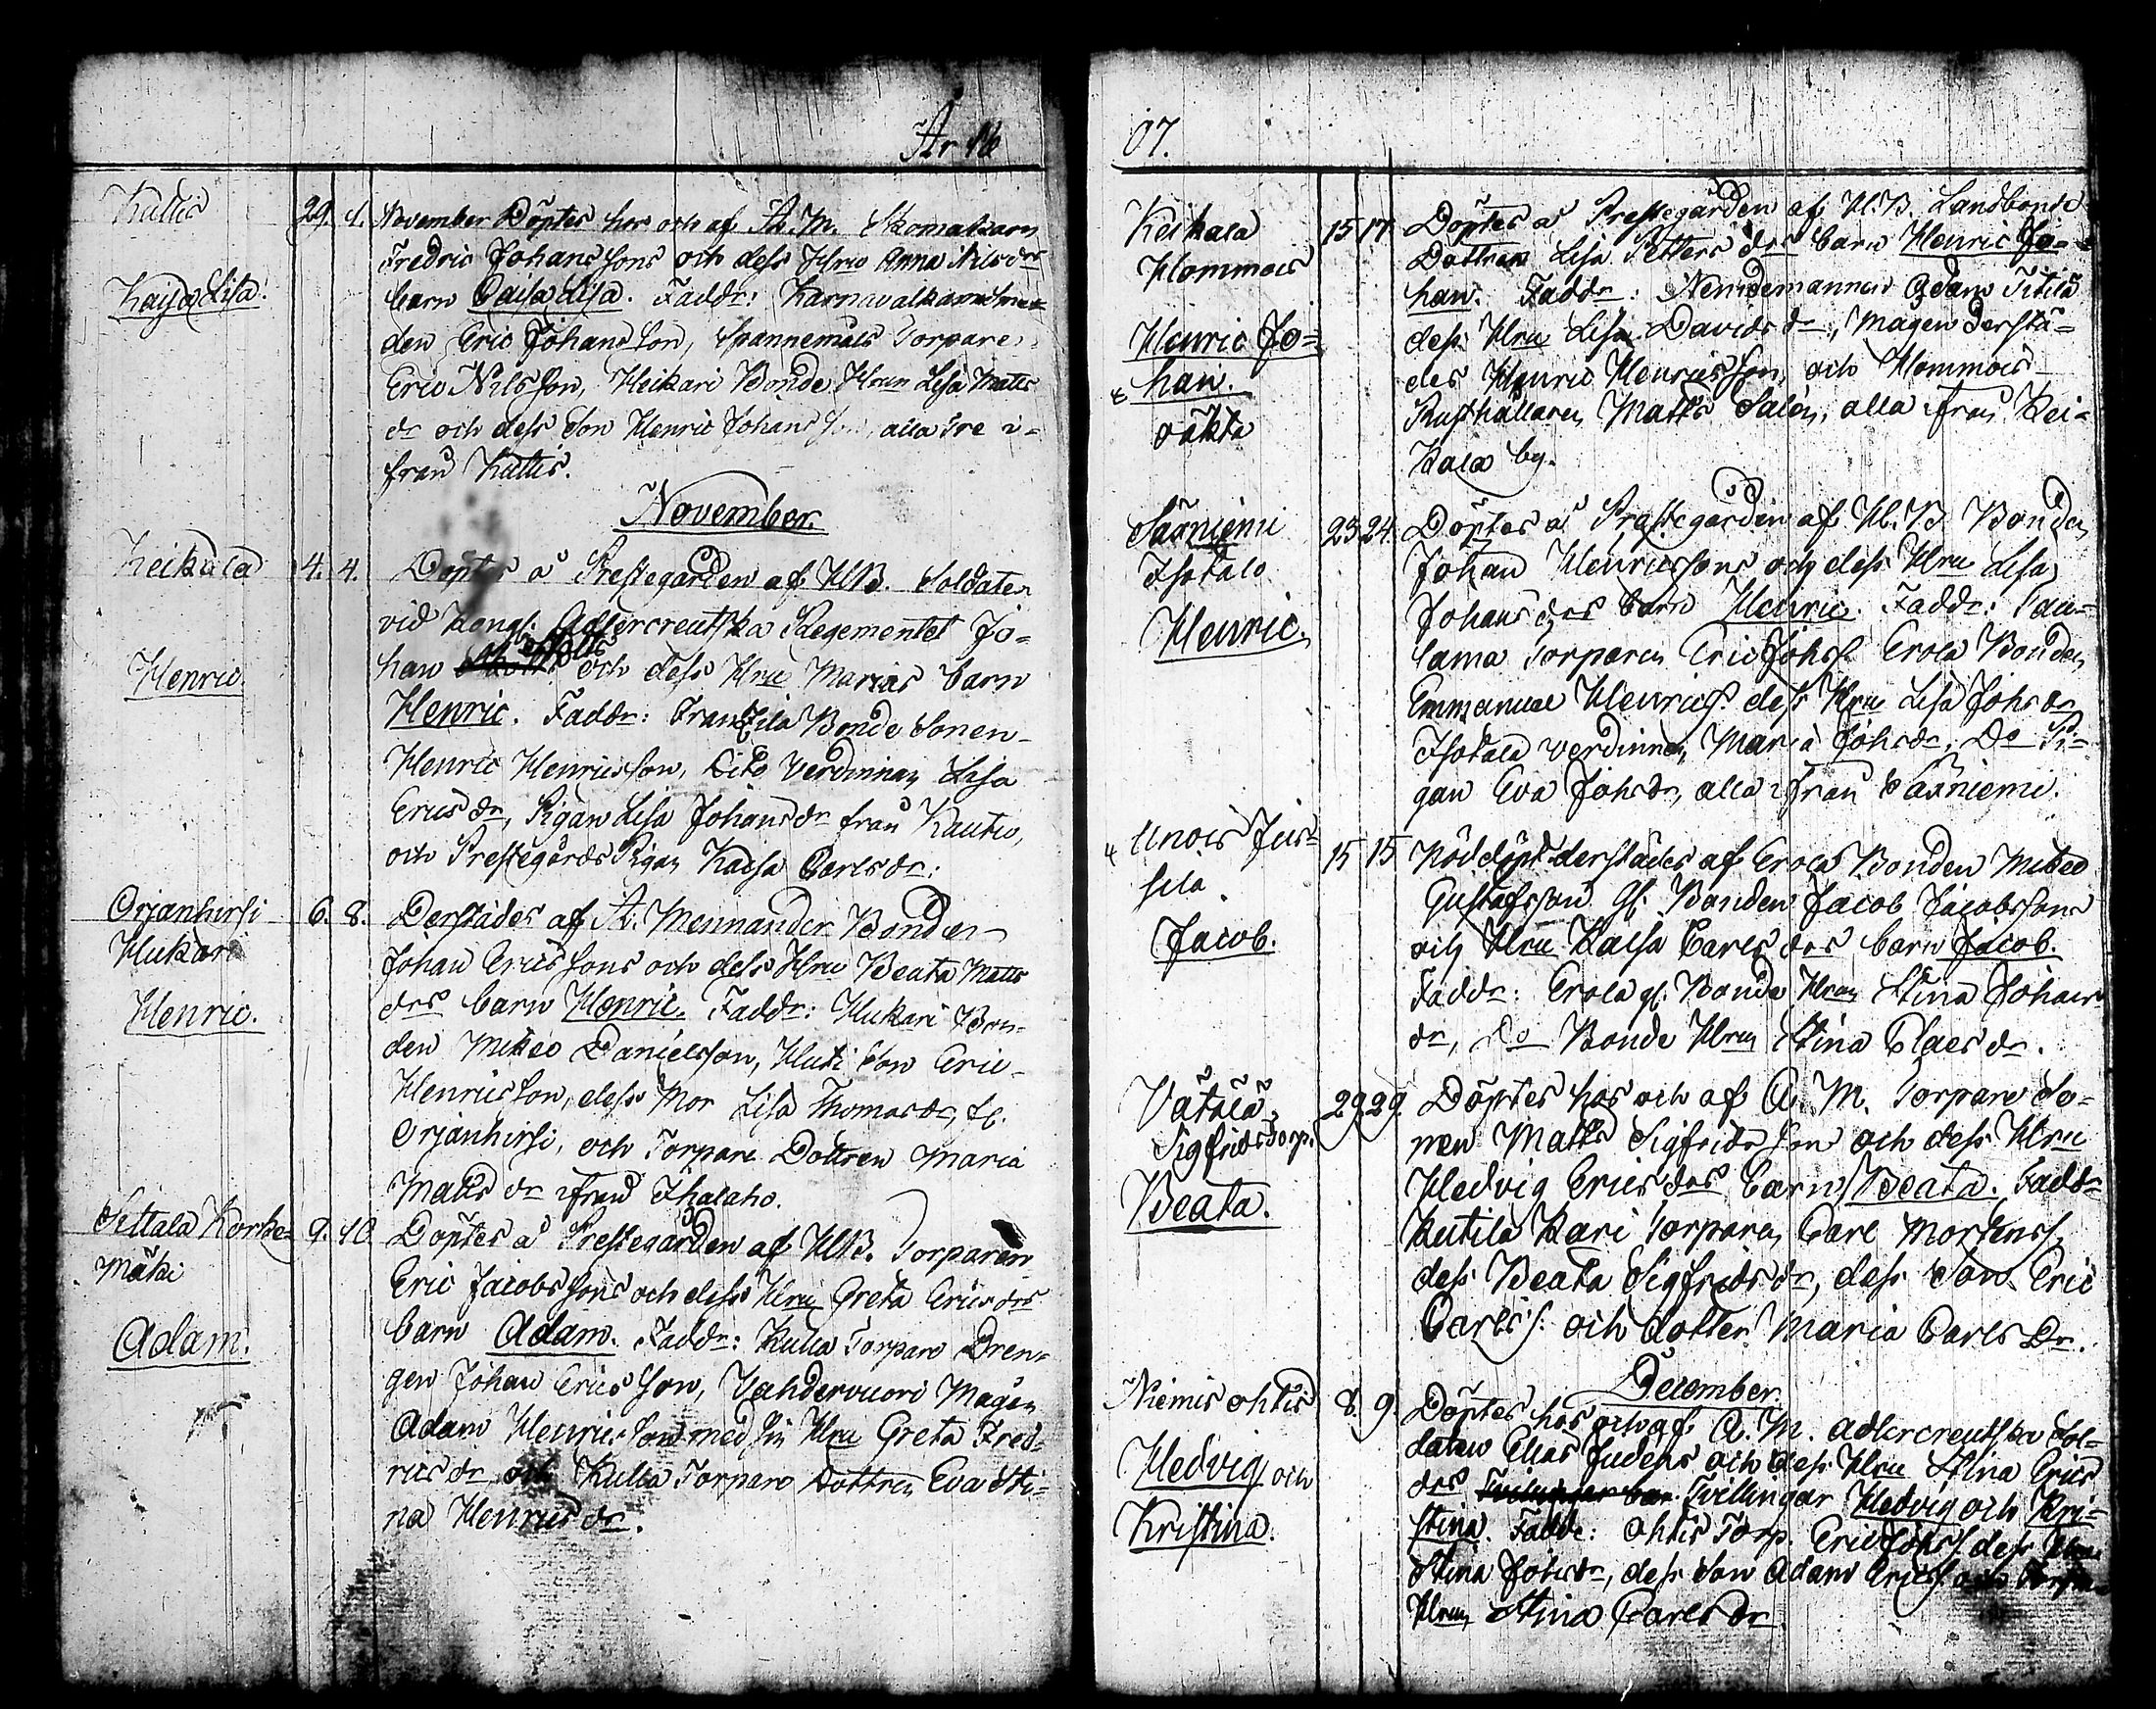 År 18
Kallis
Kaisa Lisa.
29. 1. November Döptes hos och af A. M. Skomakarn
Fredric Johanssons och dess Hru Anna Nilsdrs
barn Caisa Lisa. Faddr:
den Eric Johansson, Spannemäls Torpare
Eric Nilsson, Heikari Bonde Hrun Lisa Matts
dr och dess Son Henric Johansson, alla tre i-
från Kallis.
November.
Keikala
Henric
4. 4. Döptes å Prestegården af HB. Soldaten
vid Kongl. Adlercreutska Regementet Jo-
han och dess Hru Marias barn
Henric. Faddr: Franzila Bonde Sonen
Henric Henricsson, Dito Verdinnan Lisa
Ericsdr, Pigan Lisa Johansdr från Kautu,
och Prestegårds Pigan Kaisa Carlsdr:
Orjanhirsi
Hukari
Henric.
6. 8. Derstädes af A: Mennander Bonden
Johan Ericssons och dess Hru Beata Matts
drs barn Henric. Faddr: Hukari Bon-
den Mikeo Danielsson, Huti Son Eric
Henricsson, dess Mor Lisa Thomasdr, fr.
Orjanhirsi, och Torpare Dottren Maria
Mattsdr ifrån Ihalaho.
Settala Korke-
mäki
Adam.
9. 10. Döptes å Prestegården af HB. Torparen
Eric Jacobssons och dess Hru Greta Ericsdrs
barn Adam. Faddr: Kulla Torpare Dren-
gen Johan Ericsson, Vahdervuori Mågen
Adam Henricsson med sin Hru Greta Fred-
ricsdr och Kulla Torpare Dottren Eva Sti-
na Henricsdr.
07.
Keikala
Hommois
Henric Jo-
han.
oäkta
15 17. Döptes å Prestegården af H.B. Landbonde
Dottren Lisa Pettersdrs barn Henric Jo-
han. Faddr: Nemdemannen Adam Titilä
dess Hru Lisa Davidsdr, Mågen derstä-
des Henric Henricsson, och Hommois
Rusthållaren Matts Salén, alla från Kei-
kala by.
Särniemi
Isotalo
Henric
23 24. Döptes å Prestegården af H.B Bonden
Johan Henricssons och dess Hru Lisa
Johansdrs barn Henric. Faddr: Pau-
lama Torparen Eric Johss. Erola Bonden
Emmanuel Henricss. dess Hru Lisa Johsdr
Isotalo verdinnan Maria Johsdr, Do Pi-
gan Eva Johsdr, alla ifrån Särniemi.
Unois Jus-
sila.
Jacob.
15 15 Nöddöpt derstädes af Erola Bonden Mikeo
Gustafsson Gl. Bonden Jacob Jacobssons
och Hru Kaisa Carlsdrs barn Jacob.
Faddr: Erola gl. Bonde Hrun Stina Johans
dr, Do Bonde Hrun Stina Claesdr.
Vätälä
Sigfrids Torp.
Beata.
29. 29. Döptes hos och af A. M. Torpare So-
nen Matts Sigfridsson och dess Hru
Hedvig Ericsdrs barn Beata. Faddr
Kutila Kari Torparen Carl Mortenss.
dess Beata Sigfridsdr, dess Son Eric
Carlss. och dotter Maria Carls Dr.
December
Niemis ohtis
Hedvig och
Kristina.
8. 9. Döptes hos och af A. M. Adlercreutska Sol-
daten Elias Judéns och dess Hru Stina Erics
drs Tvillingar Hedvig och Kri-
stina. Faddr: ohtis Torp. Eric Johss dess Hru
Stina Johsdr, dess Son Adam Ericss och
Hrun Stina Carlsdr